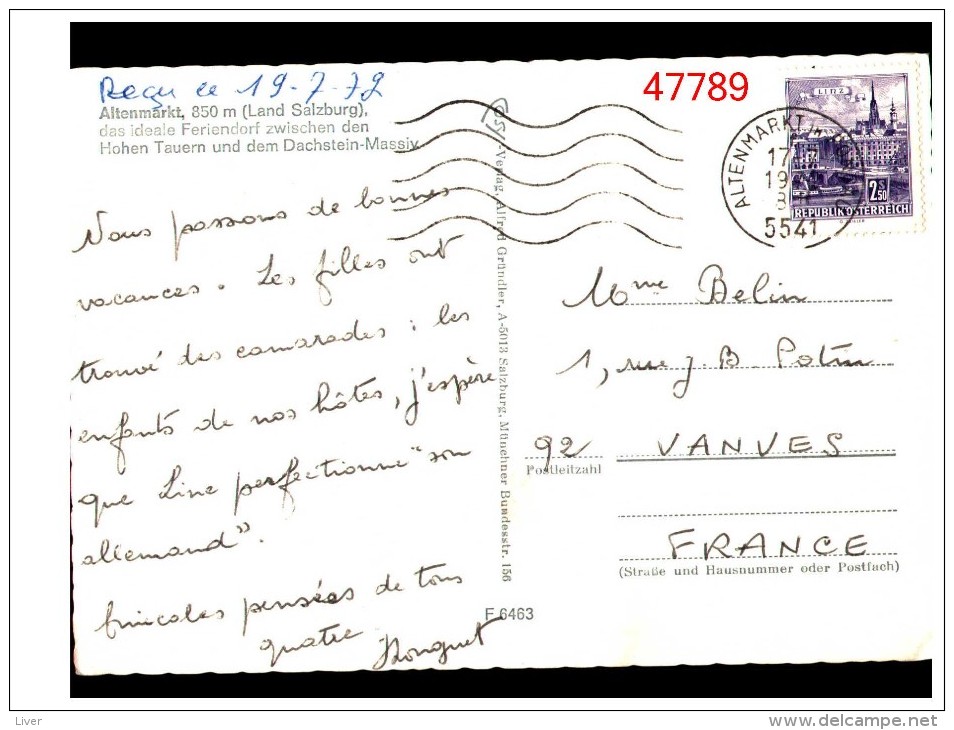 Reçu ce 19-7-72
47789
Altenmarkt, 850 m (Land Salzburg),
das ideale Feriendorf zwischen den
Hohen Tauern und dem Dachstein-Massiv
Nous passons de bonnes
vacances. Les filles ont
trouvé des camarades : les
enfants de nos hôtes, j'espère
que Line perfectionne "son
allemand".
Amicales pensées de tous
quatre
-Verlag, Alfred Gründler, A-5013 Salzburg, Münchner Bundesstr. 156
F 6463
LINZ
2.50 S
REPUBLIK ÖSTERREICH
ALTENMARKT
5541
Mme Belin
1, rue J. B. Potin
92 VANVES
Postleitzahl
FRANCE
(Straße und Hausnummer oder Postfach)
Liver
www.delcampe.net